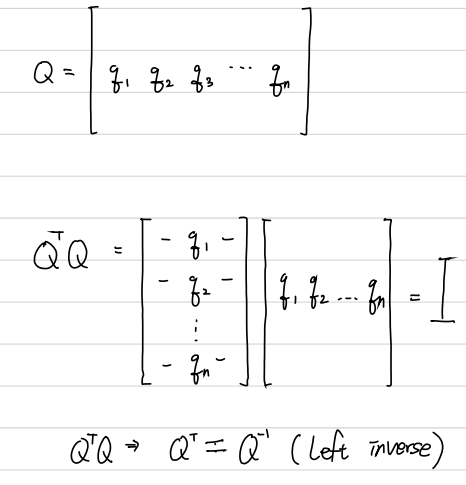 Q = [ q₁ q₂ q₃ ⋯ qₙ ]
QᵀQ = [ - q₁ - - q₂ - ⋮ - qₙ - ] [ q₁ q₂ ... qₙ ] = I
QᵀQ ⇒ Qᵀ = Q⁻¹ (Left inverse)